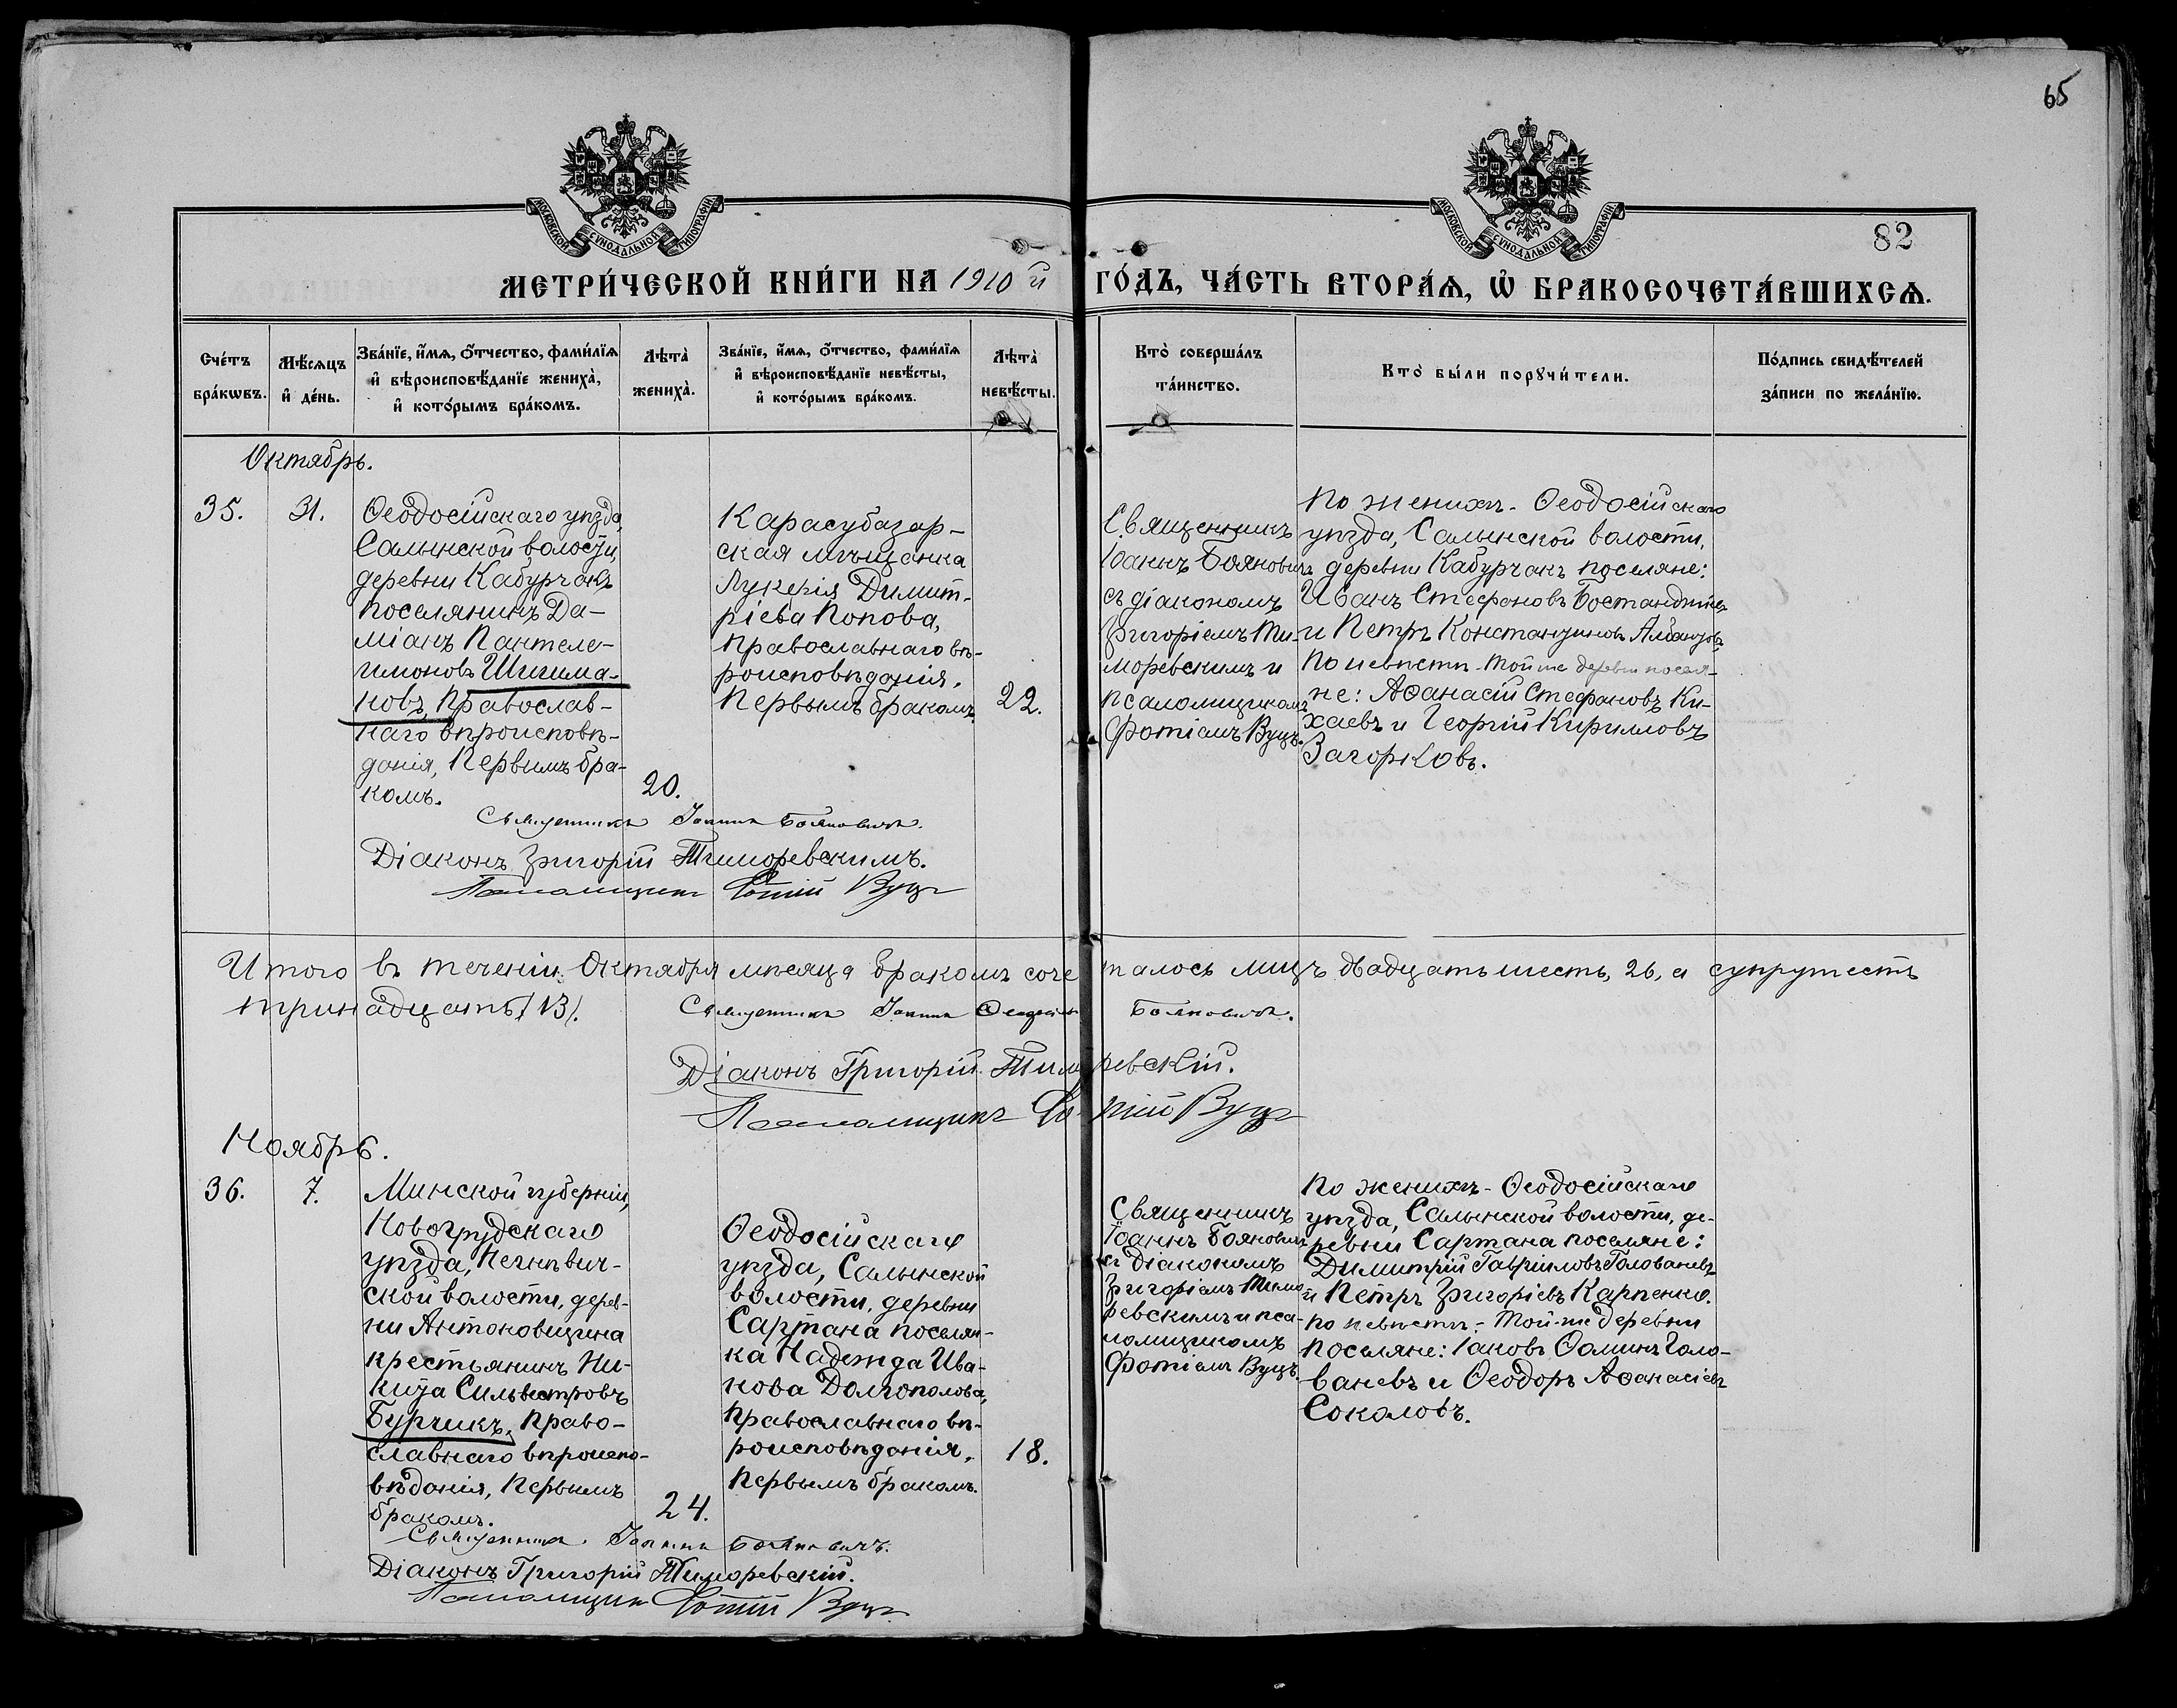 65
МОСКОВСКОЙ СУНОДАЛЬНОЙ ТИПОГРАФІИ
МОСКОВСКОЙ СУНОДАЛЬНОЙ ТИПОГРАФІИ
82
МЕТРИ́ЧЕСКОЙ КНИ́ГИ НА 1910 й ГО́ДЪ, ЧА́СТЬ ВТОРА́Ѧ, Ѡ҆ БРАКОСОЧЕТА́ВШИХСѦ.
Сче́тъ
бра́кѡвъ.
Мѣ́сѧцъ
и҆ де́нь.
Зва́нїе, и҆́мѧ, ѻ҆́тчество, фами́лїѧ
и҆ вѣроисповѣ́данїе женихà,
и҆ кото́рымъ бра́комъ.
Лѣтà
женихà.
Зва́нїе, и҆́мѧ, ѻ҆́тчество, фами́лїѧ
и҆ вѣроисповѣ́данїе невѣ́сты,
и҆ кото́рымъ бра́комъ.
Лѣтà
невѣ́сты.
Кто̀ соверша́лъ
та́инство.
Кто̀ бы́ли порꙋчи́тели.
По́дпись свидѣ́телей
за́писи по жела́нїю.
Октябрь.
35.
31.
Ѳеодосійскаго уѣзда,
Салынской волости,
деревни Кабурчакъ
поселянинъ Да-
міанъ Пантеле-
имоновъ Шишма-
новъ, православ-
наго вѣроисповѣ-
данія, первымъ бра-
комъ.
20.
Карасубазар-
ская мѣщанка
Лукерія Димит-
ріева Попова,
православнаго вѣ-
роисповѣданія,
первымъ бракомъ.
22.
Священникъ
Іоаннъ Бояновичъ
съ діакономъ
Григоріемъ Ти-
моревскимъ и
псаломщикомъ
Фотіемъ Вуцъ.
По женихѣ - Ѳеодосійскаго
уѣзда, Салынской волости,
деревни Кабурчакъ поселяне:
Иванъ Стефановъ
и Петръ Константиновъ
По невѣстѣ - той же деревни поселя-
не: Аѳанасій Стефановъ Ки-
хаевъ и Георгій Кирилловъ
Загорковъ.
Священникъ Іоаннъ Бояновичъ.
Діаконъ Григорій Тиморевскимъ.
Псаломщикъ Фотій Вуцъ
Итого въ теченіи Октября мѣсяца бракомъ сочеталось лицъ двадцать шесть, 26, а супружествъ
тринадцать /13/.
Священникъ Іоаннъ Бояновичъ.
Діаконъ Григорій Тиморевскій.
Псаломщикъ Фотій Вуцъ
Ноябрь.
36.
7.
Минской губерніи,
Новогрудскаго
уѣзда, Негнѣвич-
ской волости, дерев-
ни Антоновщина
крестьянинъ Ни-
кита Сильвестровъ
Бурчикъ, право-
славнаго вѣроиспо-
вѣданія, первымъ
бракомъ.
24.
Ѳеодосійскаго
уѣзда, Салынской
волости, деревни
Сартана поселян-
ка Надежда Ива-
нова Долгополова,
православнаго вѣ-
роисповѣданія,
первымъ бракомъ.
18.
Священникъ
Іоаннъ Бояновичъ
съ діакономъ
Григоріемъ Тимо-
ревскимъ и пса-
ломщикомъ
Фотіемъ Вуцъ.
По женихѣ - Ѳеодосійскаго
уѣзда, Салынской волости, де-
ревни Сартана поселяне:
Димитрій Гавріиловъ Голованевъ
и Петръ Григоріевъ Карпенко.
По невѣстѣ - той-же деревни
поселяне: Іаковъ Ѳоминъ Голо-
ваневъ и Ѳеодоръ Аѳанасіевъ
Соколовъ.
Священникъ Іоаннъ Бояновичъ.
Діаконъ Григорій Тиморевскій.
Псаломщикъ Фотій Вуцъ